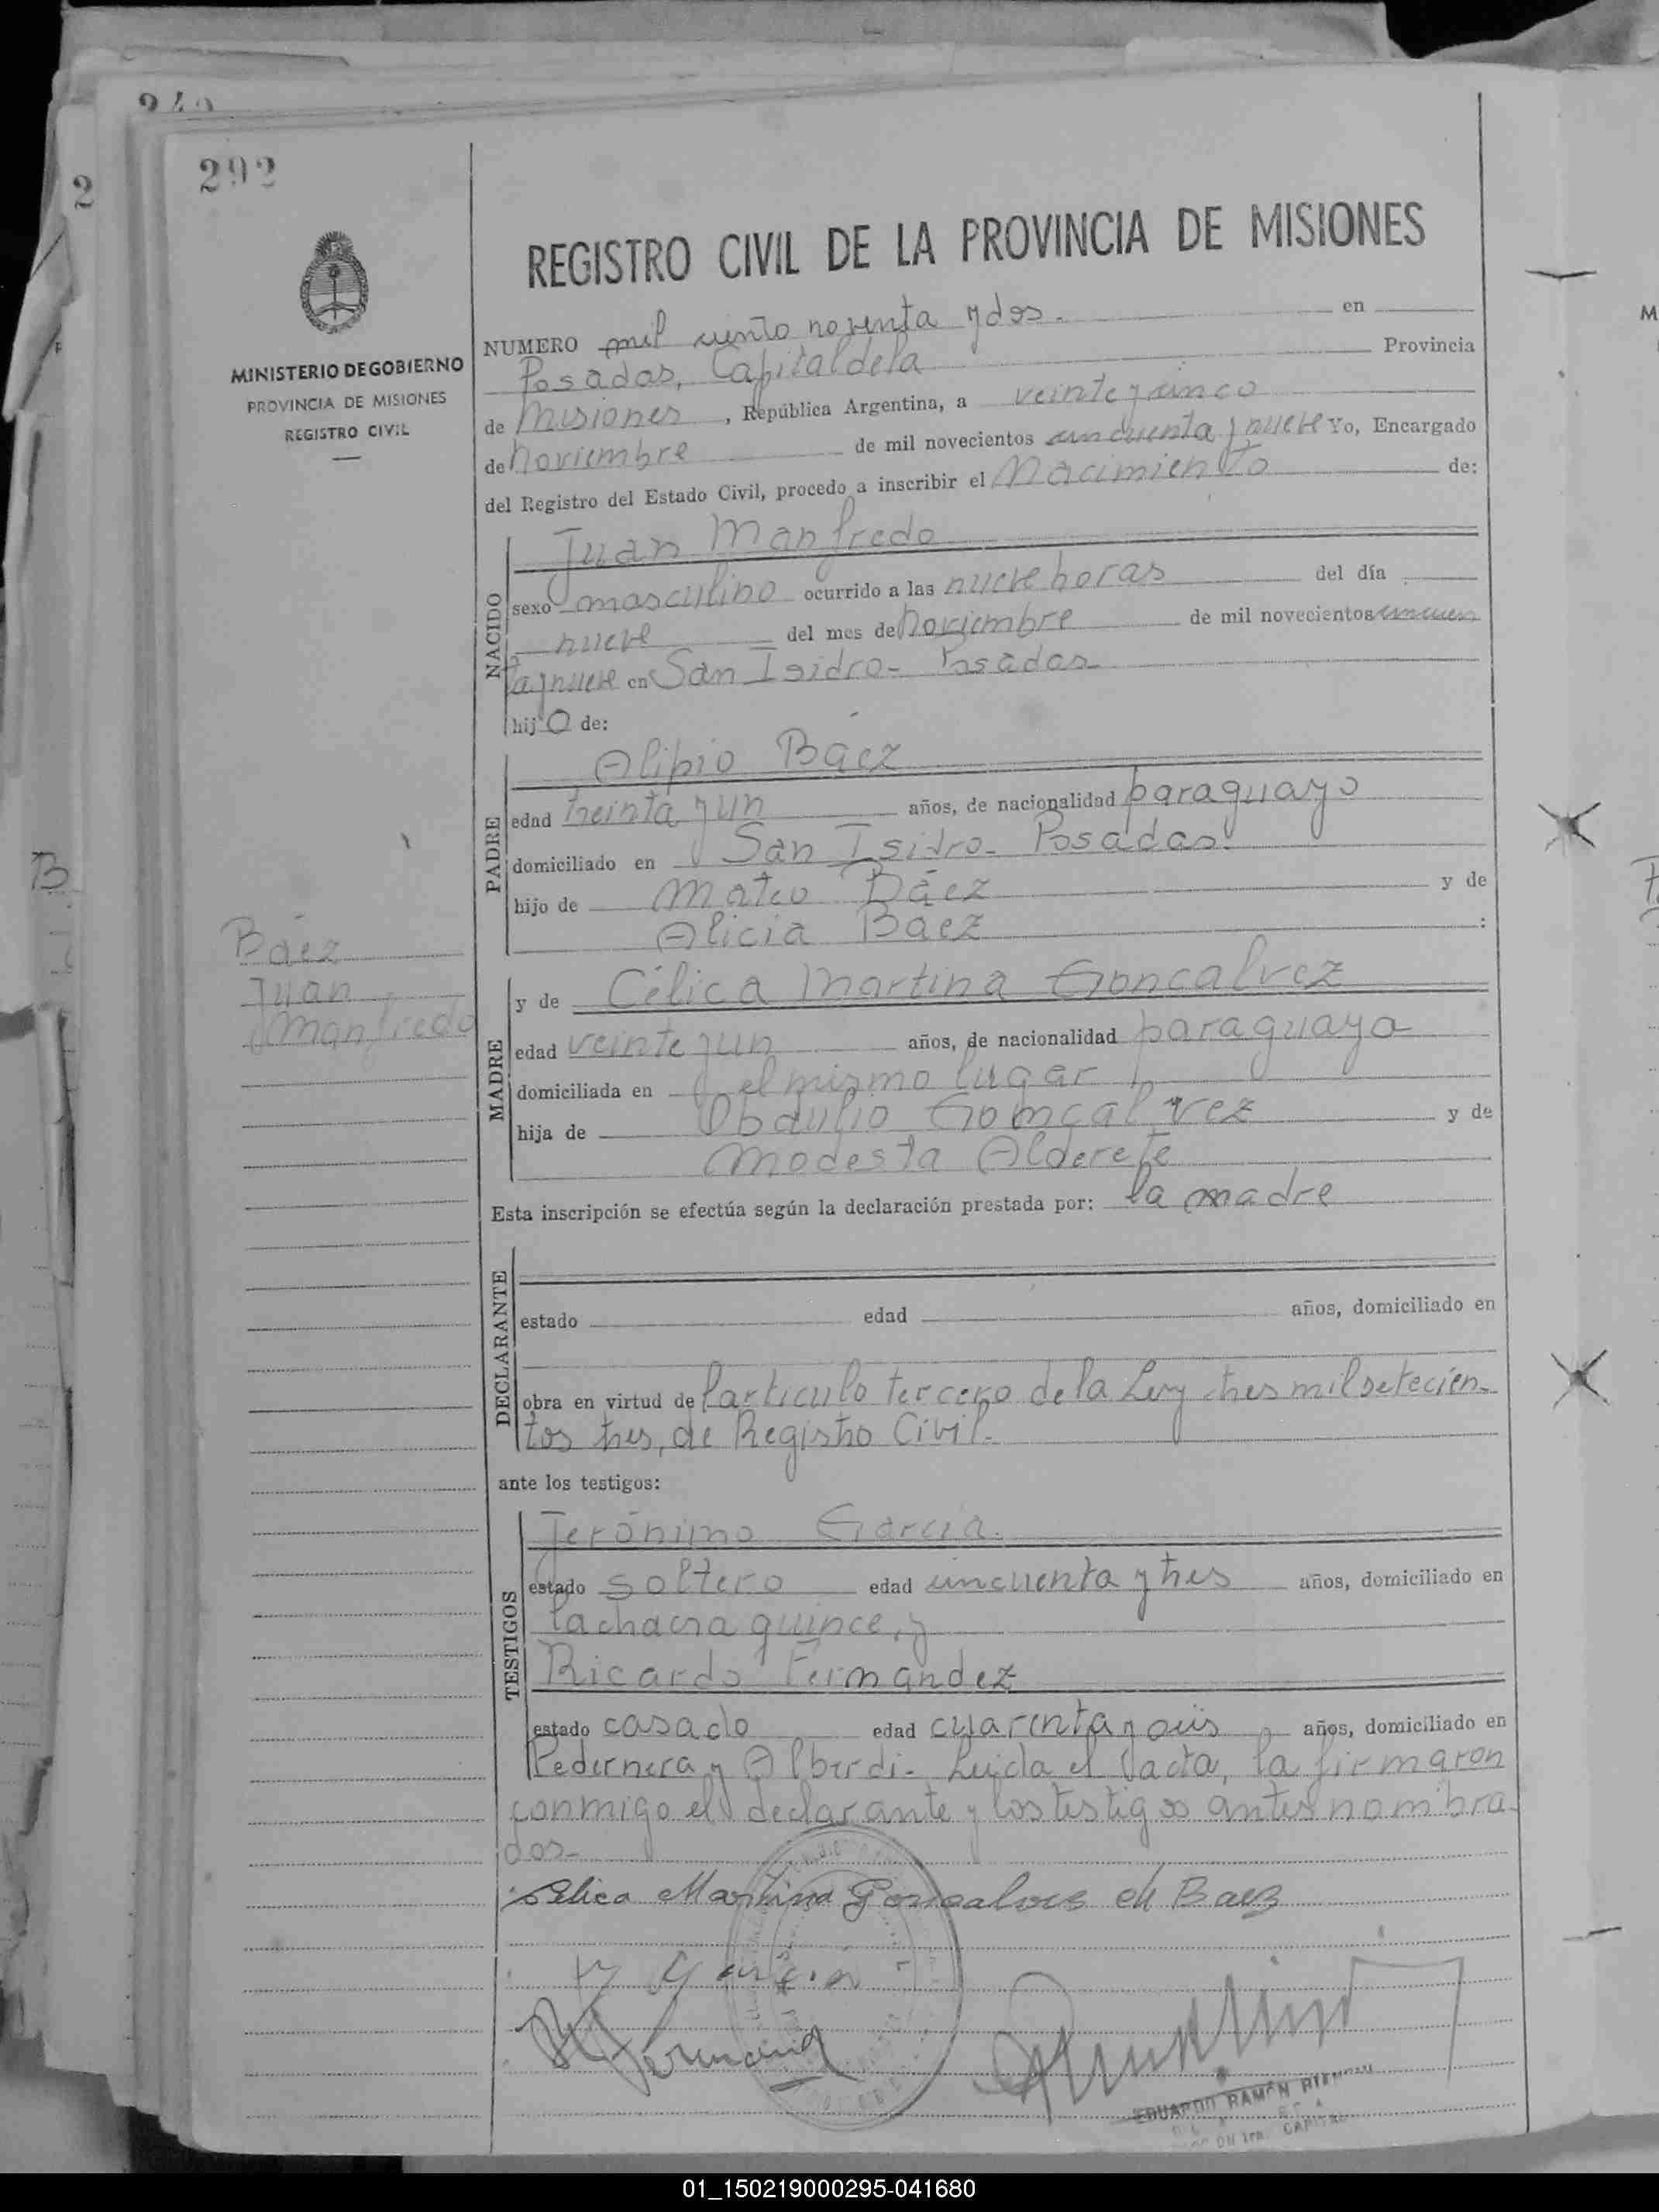 292
MINISTERIO DE GOBIERNO
PROVINCIA DE MISIONES
REGISTRO CIVIL
REGISTRO CIVIL DE LA PROVINCIA DE MISIONES
NUMERO mil ciento noventa y dos. en
Posadas, Capital de la Provincia
de Misiones, República Argentina, a veinte y cinco
de noviembre de mil novecientos cincuenta y nueve Yo, Encargado
del Registro del Estado Civil, procedo a inscribir el Nacimiento de:
NACIDO
Juan Manfredo
sexo masculino ocurrido a las nueve horas del día
nueve del mes de noviembre de mil novecientos cincuen
ta y nueve en San Isidro - Posadas
hijo de:
PADRE
Alipio Báez
edad treinta y un años, de nacionalidad paraguayo
domiciliado en San Isidro - Posadas.
hijo de Mateo Báez y de
Alicia Báez :
Báez
Juan
Manfredo
MADRE
y de Célica Martina Goncalvez
edad veinte y un años, de nacionalidad paraguaya
domiciliada en el mismo lugar
hija de Obdulio Gomcalvez y de
Modesta Alderete
Esta inscripción se efectúa según la declaración prestada por: la madre
DECLARANTE
estado edad años, domiciliado en
obra en virtud de l'articulo tercero de la Ley tres mil setecien-
tos tres, de Registro Civil.-
ante los testigos:
TESTIGOS
Jerónimo Garcia.
estado soltero edad cincuenta y tres años, domiciliado en
la chacra quince, y
Ricardo Fernández
estado casado edad cuarenta y seis años, domiciliado en
Pedernera y Alberdi - Leida el l'acta, la firmaron
conmigo el declarante y los testigos antes nombra-
dos.-
Selica Martina Gonsalves de Baez
EDUARDO RAMÓN
CAPITAL
01_150219000295-041680